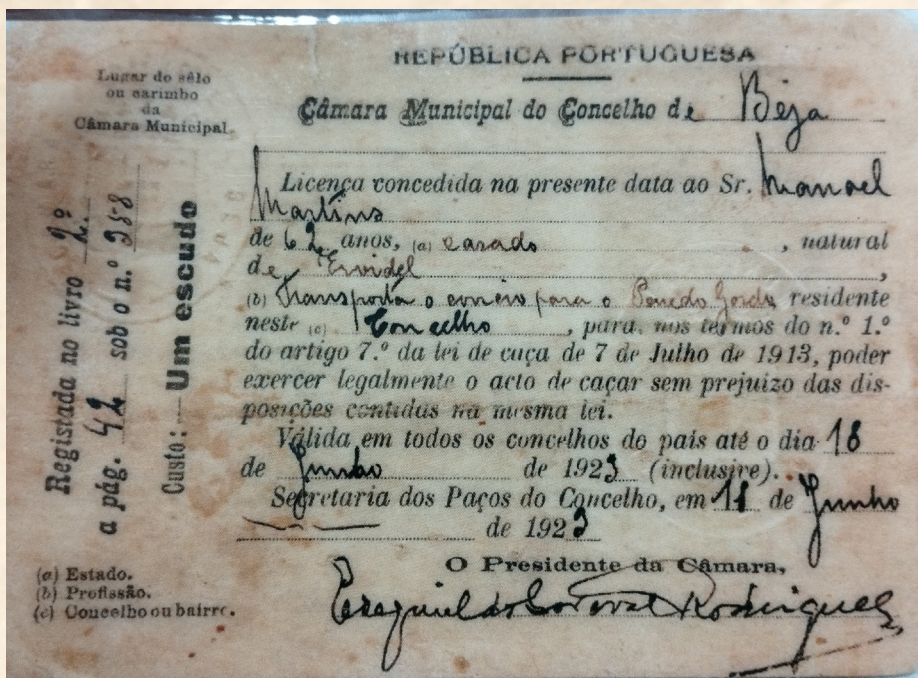 REPÚBLICA PORTUGUESA
Lugar do sêlo
ou carimbo
da
Câmara Municipal
Câmara Municipal do Concelho de Béja
Licença concedida na presente data ao Sr. Manoel
Martins
de 62 anos, (a) casado , natural
de Ervidel ,
(b) Transporta o correio para o Penedo Gordo residente
neste (c) Concelho , para, nos termos do n.º 1.º
do artigo 7.º da lei de caça de 7 de Julho de 1913, poder
exercer legalmente o acto de caçar sem prejuizo das dis-
posições contidas na mesma lei.
Válida em todos os concelhos do país até o dia 18
de Junho de 1923 (inclusive).
Secretaria dos Paços do Concelho, em de Junho
de 1923
O Presidente da Câmara,
Rodrigues
Registada no livro 2.º
a pág. 42 sob o n.º 358
Custo:— Um escudo
(a) Estado.
(b) Profissão.
(c) Concelho ou bairro.